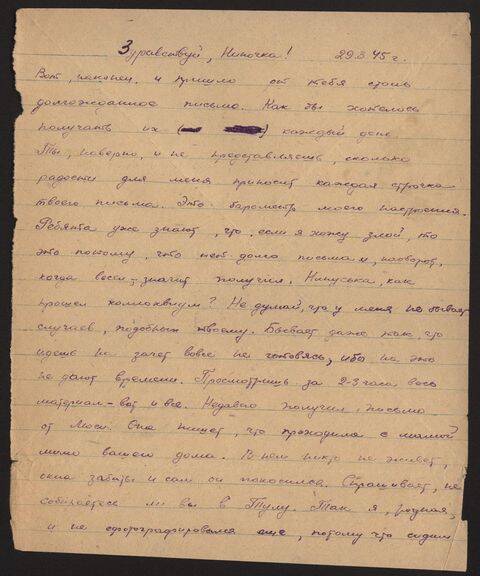 Здравствуй, Ниночка! 29.3.45 г.
Вот, наконец, и пришло от тебя столь
долгожданное письмо. Как бы хотелось
получать их каждый день
Ты, наверно, и не представляешь, сколько
радости для меня приносит каждая строчка
твоего письма. Это барометр моего настроения.
Ребята уже знают, что, если я хожу злой, то
это потому, что нет долго письма и, наоборот,
когда весел – значит получил. Нинуська, как
прошел коллоквиум? Не думай, что у меня не бывает
случаев, подобных твоему. Бывает даже так, что
идешь на зачет вовсе не готовясь, ибо на это
не дают времени. Просмотришь за 2-3 часа весь
материал – вот и все. Недавно получил письмо
от Люси. Она пишет, что проходила с мамой
мимо вашего дома. В нем никто не живет,
окна забиты и сам он покосился. Спрашивает, не
собираетесь ли вы в Тулу. Так я, родная,
и не сфотографировался еще, потому что сидим